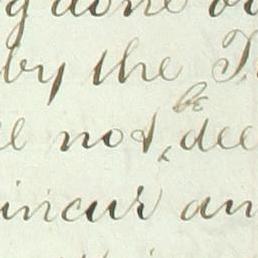 g done or
by the T
ll not be dee
incur an